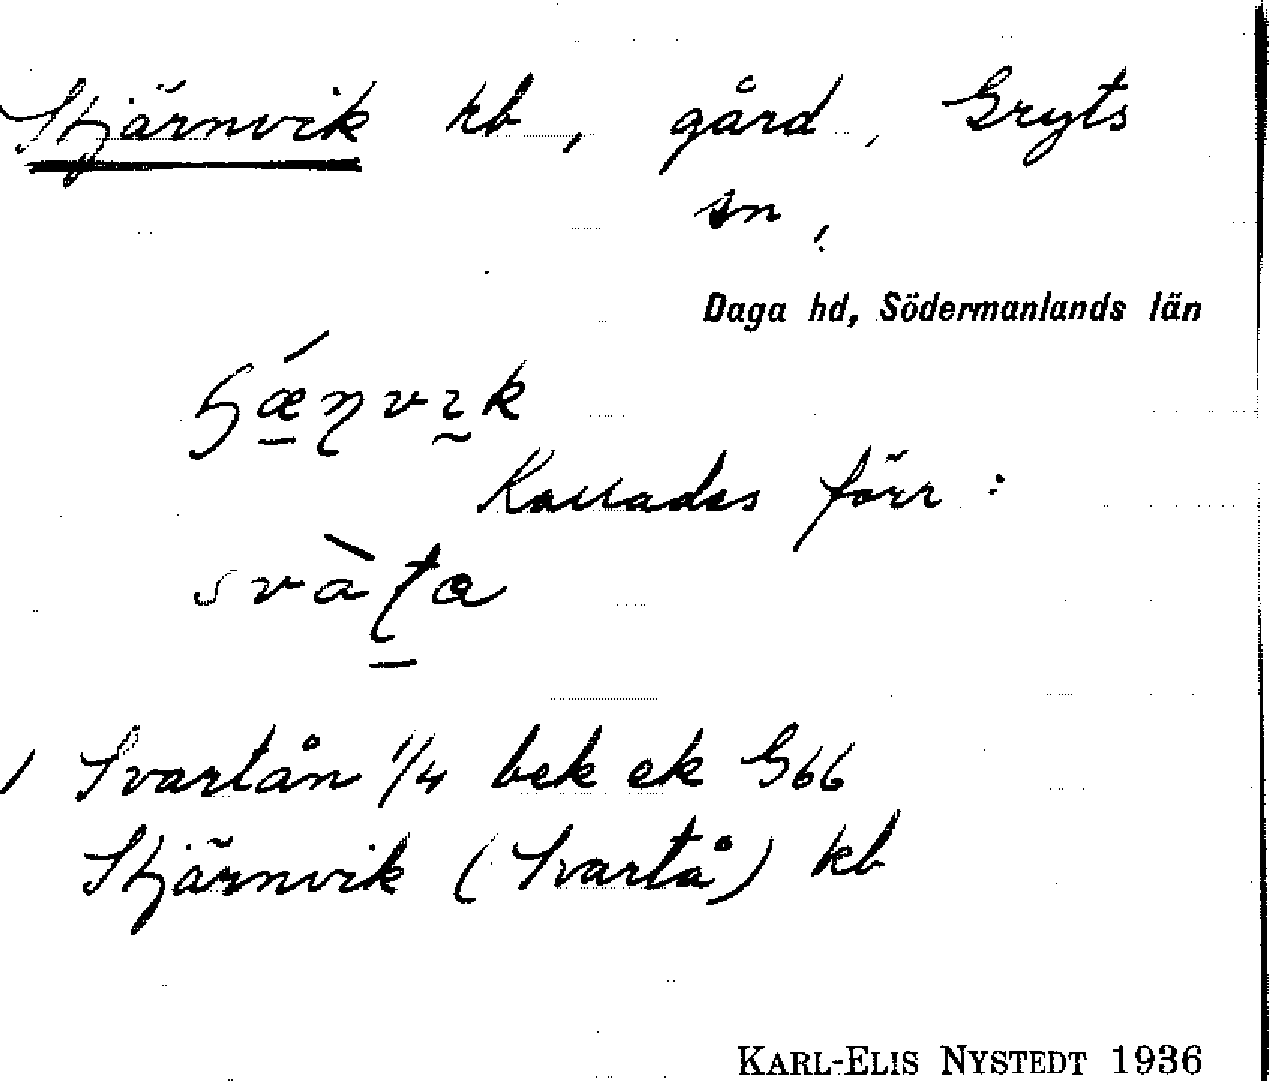 Stjärnvik kb, gård, Gryts
sn,
Daga hd, Södermanlands län
Kallades förr:
Svartån 1/4 bek ek G66
Stjärnvik (Svartå) kb
KARL-ELIS NYSTEDT 1936